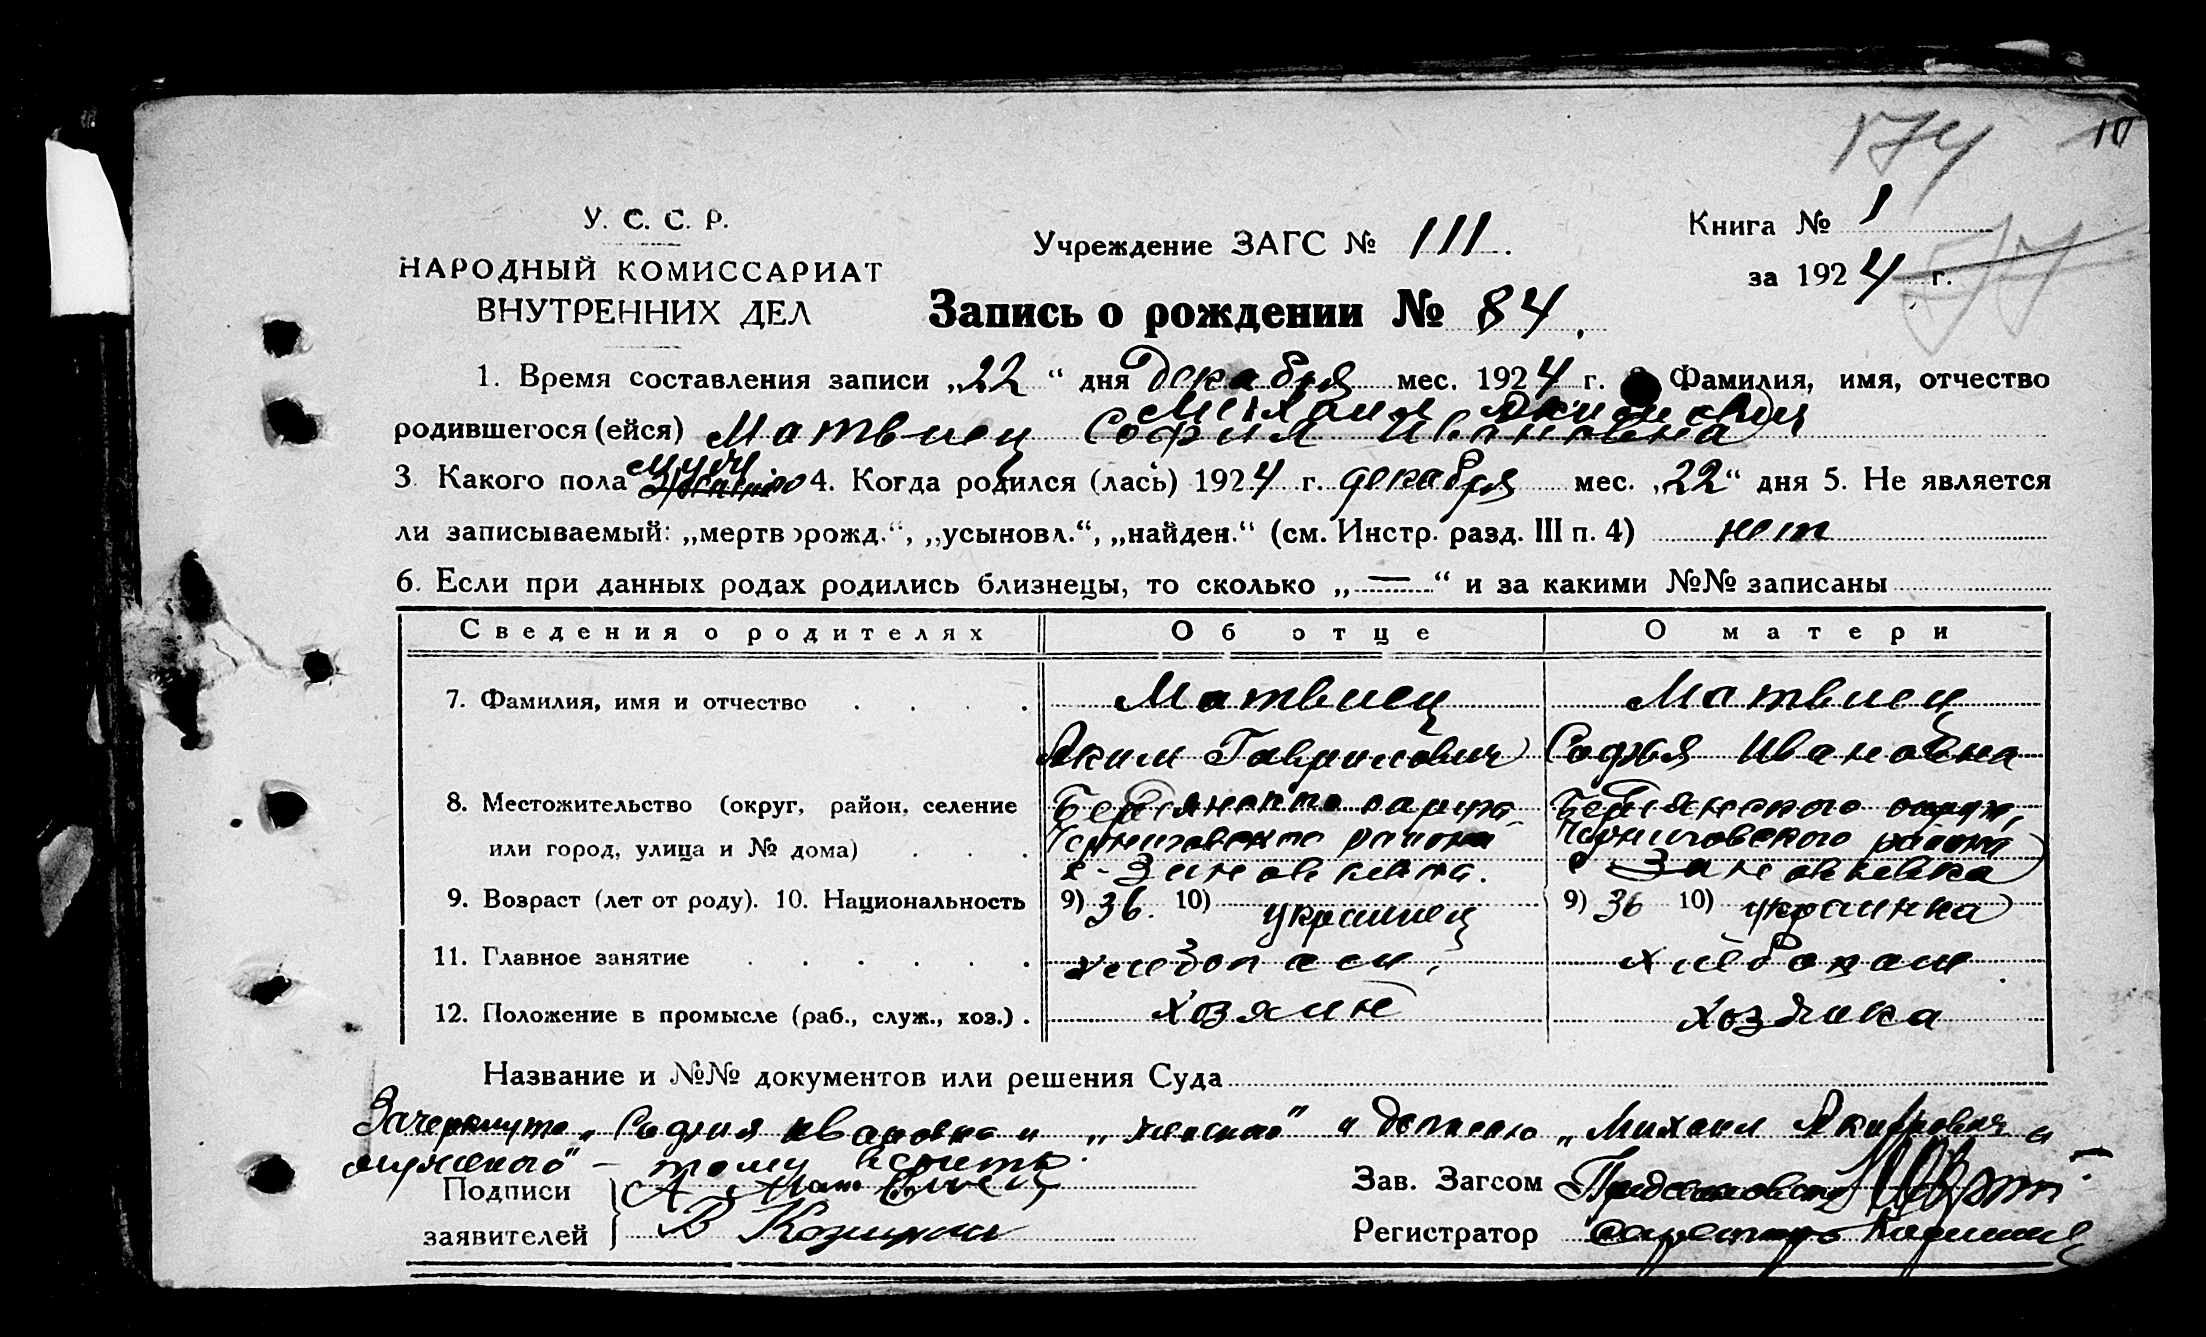 174 10
У. С. С. Р.
НАРОДНЫЙ КОМИССАРИАТ
ВНУТРЕННИХ ДЕЛ
Учреждение ЗАГС № 111.
Книга № 1
за 1924 г.
Запись о рождении № 84.
1. Время составления записи „22“ дня Декабря мес. 1924 г. Фамилия, имя, отчество
Михаил Якимович
родившегося (ейся) Матвиец София Ивановна
муж.
3. Какого пола 4. Когда родился (лась) 1924 г. декабря мес. „22“ дня 5. Не является
ли записываемый: „мертворожд.“, „усыновл.“, „найден.“ (см. Инстр. разд. III п. 4) нет
6. Если при данных родах родились близнецы, то сколько „—“ и за какими №№ записаны
Сведения о родителях Об отце О матери
7. Фамилия, имя и отчество Матвиец Матвиец
Яким Гаврилович Софья Ивановна
8. Местожительство (округ, район, селение Бердянского округа Бердянского округа,
Черниговского района Черниговского района
или город, улица и № дома)
с. Зиновьевка. с Зиновьевка
9. Возраст (лет от роду). 10. Национальность 9) 36. 10) украинец 9) 36 10) украинка
11. Главное занятие хлебопаш. хлебопаш
12. Положение в промысле (раб., служ., хоз.) хозяин хозяйка
Название и №№ документов или решения Суда
Зачеркнуто „София Ивановна и „женский“ и дописано „Михаил Якимович и
мужского“ — тому верить.
Подписи А Матвиец Зав. Загсом
заявителей В Козицкий Регистратор Секретарь